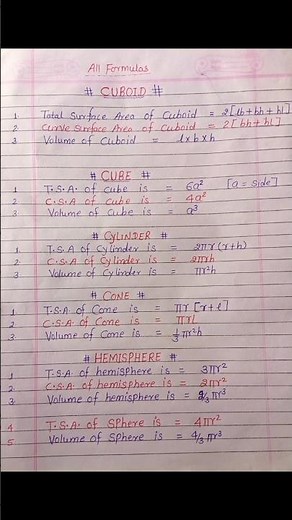 All Formulas
# CUBOID #
1 Total Surface Area of Cuboid = 2[lb+bh+hl]
2 Curve Surface Area of Cuboid = 2[bh+hl]
3 Volume of Cuboid = l×b×h
# CUBE #
1 T.S.A. of cube is = 6a² [a = side]
2 C.S.A of cube is = 4a²
3 Volume of cube is = a³
# CYLINDER #
1 T.S.A of Cylinder is = 2πr(r+h)
2 C.S.A of Cylinder is = 2πrh
3 Volume of Cylinder is = πr²h
# CONE #
1 T.S.A. of Cone is = πr[r+l]
2 C.S.A. of Cone is = πrl
3 Volume of Cone is = 1/3 πr²h
# HEMISPHERE #
1 T.S.A of hemisphere is = 3πr²
2 C.S.A. of hemisphere is = 2πr²
3 Volume of hemisphere is = 2/3 πr³
4 T.S.A. of Sphere is = 4πr²
5 Volume of Sphere is = 4/3 πr³